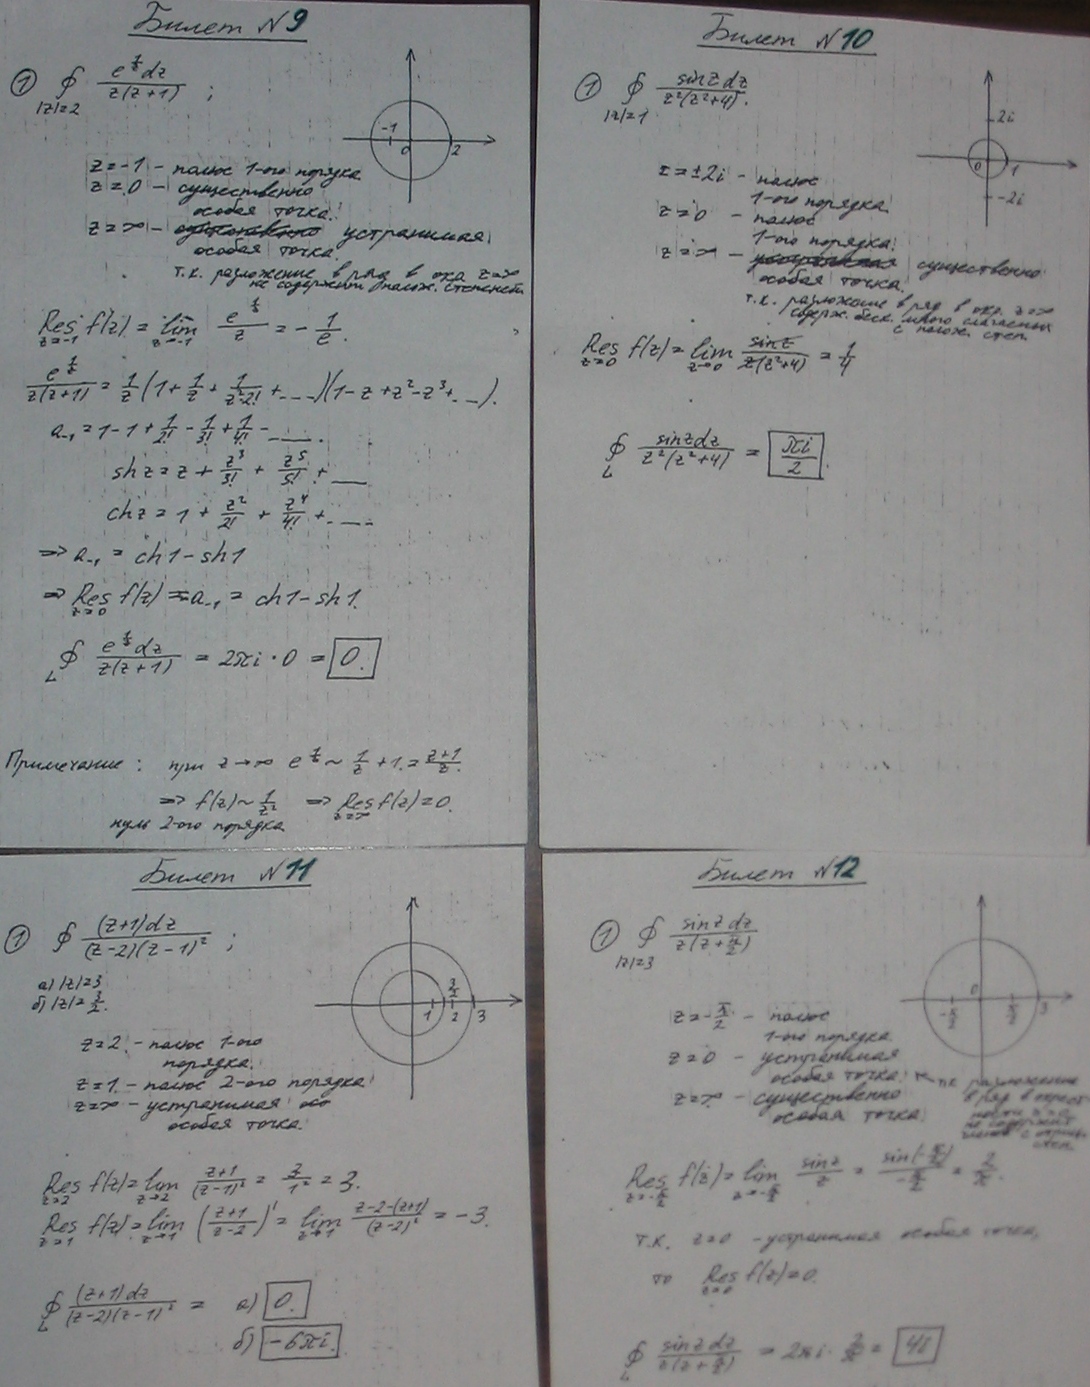 Билет №9
① ∮ e^{1/z}dz / z(z+1) ;
|z|=2
-1 0 2
z=-1 - полюс 1-ого порядка
z=0 - существенно
особая точка.
z=∞ - устранимая
особая точка.
т.к. разложение в ряд в окр z=∞
не содержит полож. степеней
Res f(z) = lim e^{1/z} / z = - 1/e.
z=-1 z→-1
e^{1/z} / z(z+1) = 1/z (1 + 1/z + 1/z²2! + ...)(1 - z + z² - z³ + ...).
a₋₁ = 1 - 1 + 1/2! - 1/3! + 1/4! - ....
sh z = z + z³/3! + z⁵/5! + ...
ch z = 1 + z²/2! + z⁴/4! + ...
⇒ a₋₁ = ch1 - sh1
⇒ Res f(z) = a₋₁ = ch1 - sh1.
z=0
∮ e^{1/z}dz / z(z+1) = 2πi · 0 = 0.
L
Примечание : при z→∞ e^{1/z} ~ 1/z + 1 = z+1/z.
⇒ f(z) ~ 1/z² ⇒ Res f(z) = 0.
z=∞
нуль 2-ого порядка
Билет №10
① ∮ sinz dz / z²(z²+4).
|z|=1
2i
0 1
-2i
z=±2i - полюс
1-ого порядка
z=0 - полюс
1-ого порядка.
z=∞ - существенно
особая точка.
т.к. разложение в ряд в окр. z=∞
содерж. беск. много слагаемых
с полож. степ.
Res f(z) = lim sinz / z(z²+4) = 1/4
z=0 z→0
∮ sinz dz / z²(z²+4) = πi/2.
L
Билет №11
① ∮ (z+1)dz / (z-2)(z-1)² ;
а) |z|=3
б) |z|=3/2.
1 3/2 2 3
z=2 - полюс 1-ого
порядка.
z=1 - полюс 2-ого порядка
z=∞ - устранимая
особая точка.
Res f(z) = lim z+1 / (z-1)² = 3/1² = 3.
z=2 z→2
Res f(z) = lim (z+1 / z-2)' = lim z-2-(z+1) / (z-2)² = -3.
z=1 z→1 z→1
∮ (z+1)dz / (z-2)(z-1)² = а) 0.
L
б) -6πi.
Билет №12
① ∮ sinz dz / z(z+π/2)
|z|=3
-π/2 0 π/2 3
z=-π/2 - полюс
1-ого порядка
z=0 - устранимая
особая точка. т.к. разложение
в ряд в окрест
ности z=0
не содержит
членов с отриц.
степ.
z=∞ - существенно
особая точка
Res f(z) = lim sinz / z = sin(-π/2) / -π/2 = 2/π.
z=-π/2 z→-π/2
т.к. z=0 - устранимая особая точка,
то Res f(z) = 0.
z=0
∮ sinz dz / z(z+π/2) = 2πi · 2/π = 4i
L